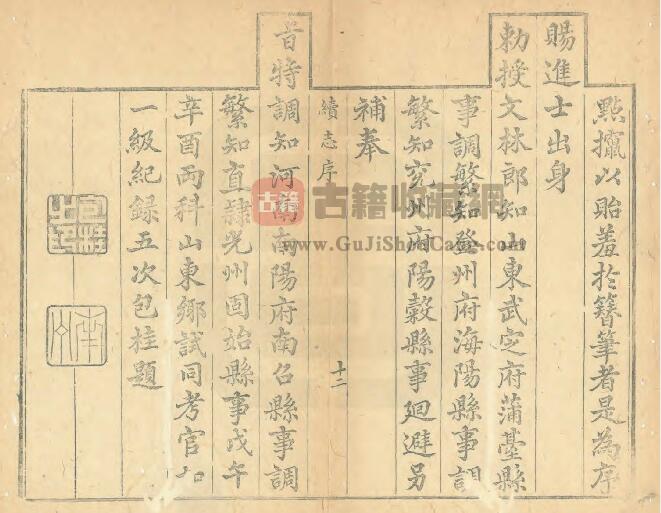 點攛以貽羞於簪筆者是為序
賜進士出身
勅授文林郎知山東武定府蒲臺縣
事調繁知登州府海陽縣事調
繁知兗州府陽穀縣事廻避另
補奉
續志序
十二
旨特調知河南南陽府南召縣事調
繁知直隸光州固始縣事戊午
辛酉兩科山東鄉試同考官加
一級紀録五次包桂題
古籍 古籍收藏網
www.GuJiShouCang.com